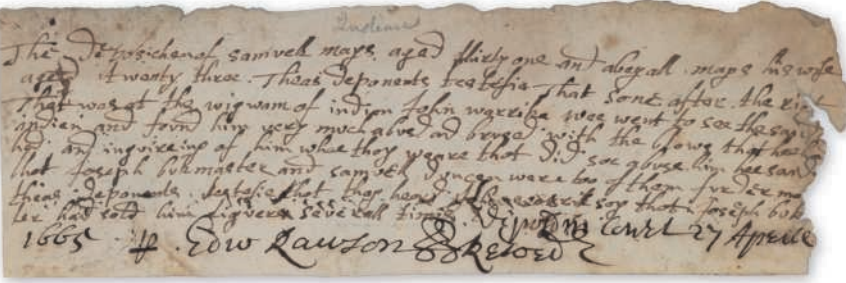 Indians
The deposichen of samvell mays aged thirty one and abegall mays his wife
aged twenty three. Theas deponents testefie That sone after the riot
That was at the wigwam of indyon John warriba wee went to see the sayd
indien and fovnd him very much abvsed and brvsed with the blows that hee
had and inqvireing of him whoe thay weare that did soe abvse him hee sayd
that Joseph bvkmaster and samvell dvncen were too of them fvrder more
theas deponents testefie that thay heard say that Joseph bvk
ter had sold him liqvers severall times. Depozd in Court 27 Aprill
1665 p. Edw Rawson Record